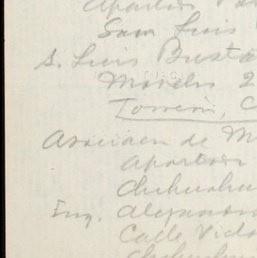 Apartado
San Luis
S. Luis Busta
Morelos 2
Torreón, C
Asociacion de M
Apartado
Chihuahua
Ing. Alejandro
Calle Vic
Chihuahua